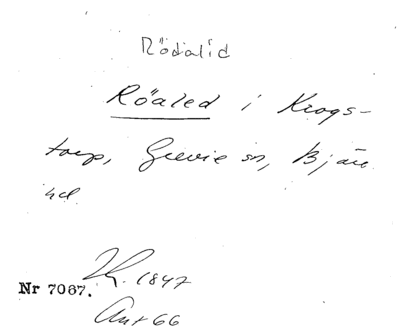 Rödalid
Röaled i Krogs-
torp, Grevie sn, Bjäre
hd
Nr 7087. 1847
Ant 66